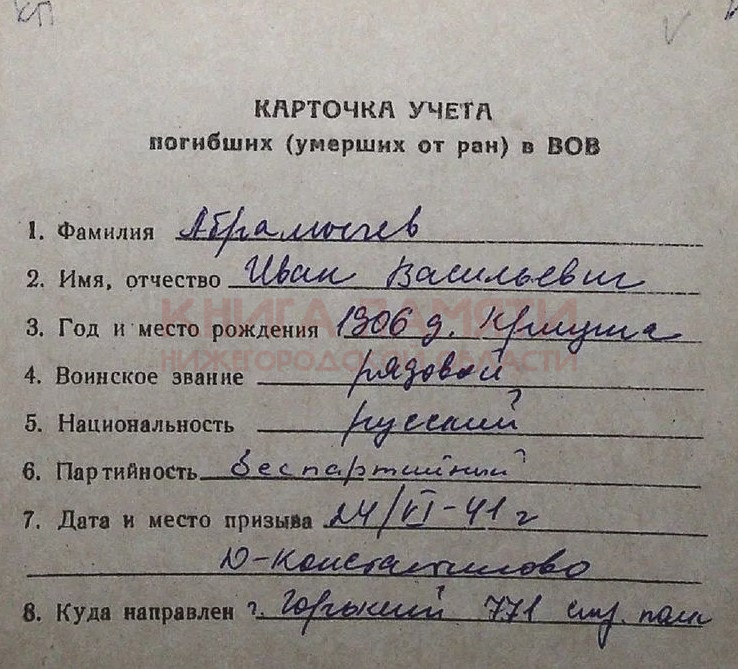 КП
КАРТОЧКА УЧЕТА
погибших (умерших от ран) в ВОВ
1. Фамилия Абрамычев
2. Имя, отчество Иван Васильевич
КНИГА ПАМЯТИ
3. Год и место рождения 1906 г. Криуша
НИЖЕГОРОДСКОЙ ОБЛАСТИ
4. Воинское звание рядовой
5. Национальность русский
6. Партийность беспартийный
7. Дата и место призыва 24/VI-41 г
Д-Константиново
8. Куда направлен г. Горький 771 полк